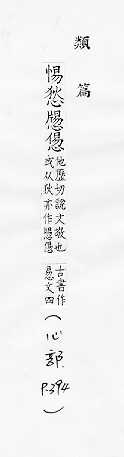 類篇
惕悐
他歷切說文敬也
或从狄亦作
古書作
惖文四
(心部.P.394)